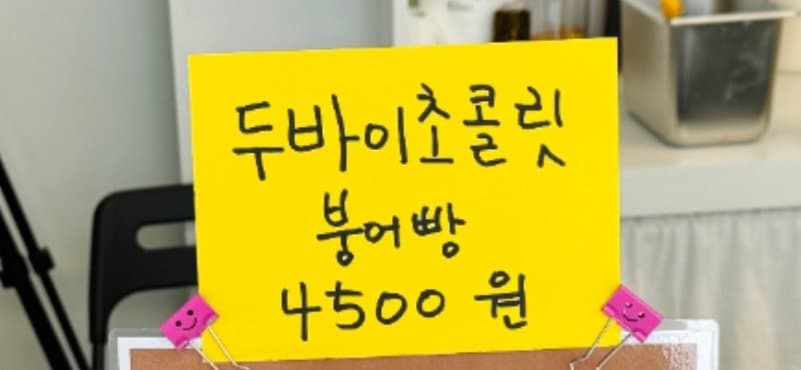 두바이초콜릿
붕어빵
4500 원